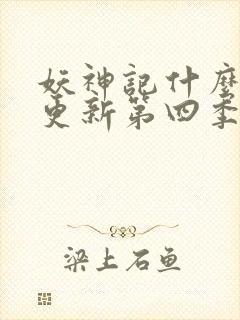 妖神記什麼
更新第四季
梁上石鱼